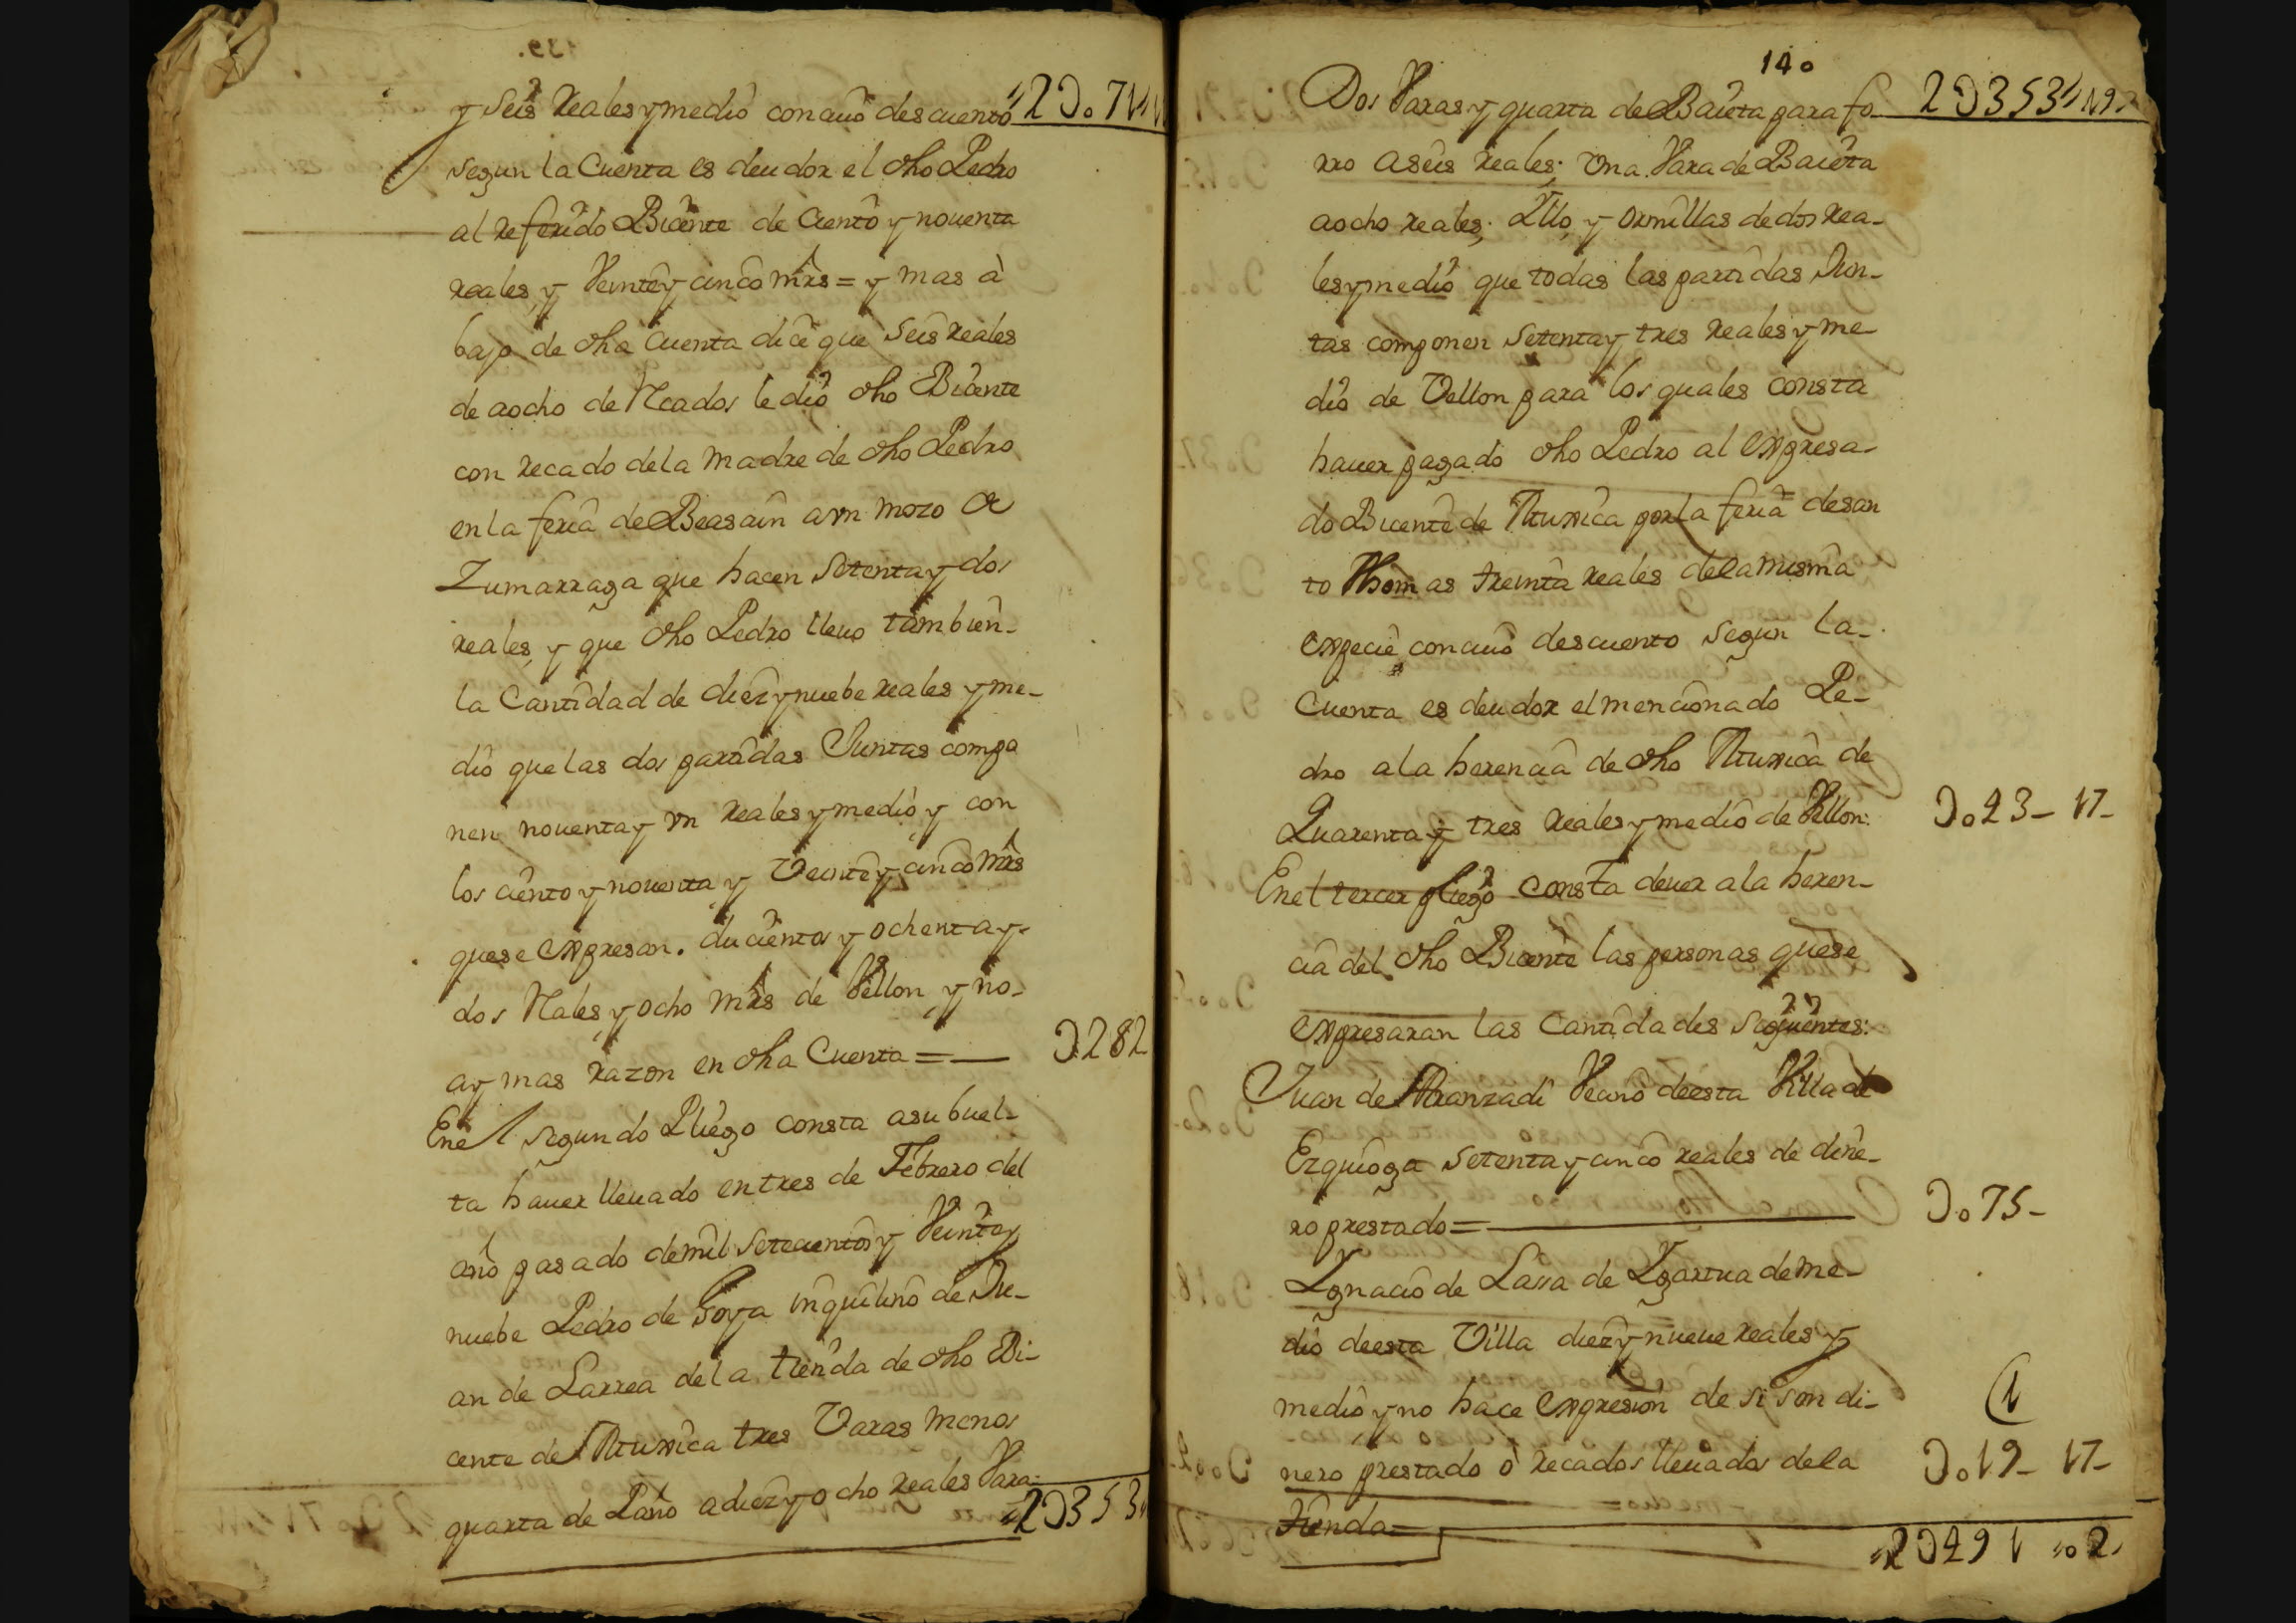 139.
y seis Reales y medio con cuio descuento "2D071"11
segun la Cuenta es deudor el dho Pedro
al referido Bicente de Ciento y nouenta
reales, y Veinte y cinco mrs = y mas à
bajo de dha Cuenta dice que seis reales
de aocho de Rcados le dio dho Bicente
con recado de la Madre de dho Pedro
en la feria de Beasain a vn mozo de
Zumarraga que hacen setenta y dos
reales, y que dho Pedro lleuo tambien
la Cantidad de diez y nuebe reales y me-
dio que las dos partidas Juntas compo
nen nouenta y vn reales y medio, y con
los ciento y nouenta y Veinte y cinco mrs
que se expresan. ducientos y ochenta y
dos Rales, y ocho mrs de Vellon, y no-
ay mas razon en dha Cuenta = D.282
En el segundo Pliego consta asu buel-
ta hauer lleuado en tres de Febrero del
año pasado de mil setecientos y Veinte y
nuebe Pedro de Goya inquilino de Ju-
an de Larrea de la tienda de dho Bi-
cente de Yturrica tres Varas menos
quarta de Paño a diez y ocho reales Vara:
"2D353"
140
Dos Varas y quarta de Baieta para fo- 2D353"19
rro a seis reales; Vna Vara de Baieta
aocho reales; Ylo, y ormillas de dos Rea-
les y medio que todas las partidas Jun-
tas componen setenta y tres reales y me-
dio de Vellon para los quales consta
hauer pagado dho Pedro al expresa-
do Bicente de Yturrica por la feria de san
to Thomas treinta reales de la misma
expecie, con cuio descuento segun la-
Cuenta es deudor el mencionado Pe-
dro a la herencia de dho Yturrica de
Quarenta y tres reales y medio de Vellon: D043-17-
En el tercer pliego consta deuer a la heren-
cia del dho Bicente las personas que se
expresaran las Cantidades siguientes:
Juan de Aranzadi Vecino de esta Villa de
Ezquioga setenta y cinco reales de dine-
ro prestado = D075-
Ygnacio de Lassa de Ygartua de me-
dio de esta Villa diez y nueue reales y
medio y no hace expresion de si son di-
nero prestado ò recados lleuados de la D019-17-
tienda =
"2D491"02